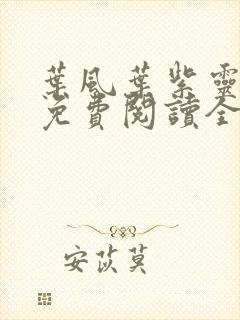 葉風葉紫靈
免費閱讀全
安苡莫